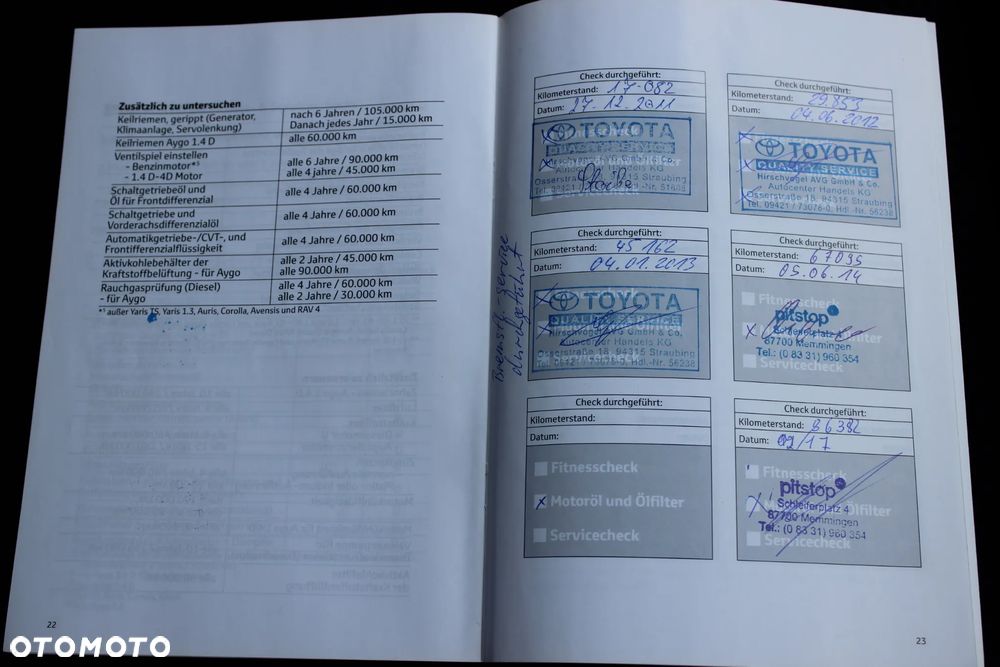 Zusätzlich zu untersuchen
Keilriemen, gerippt (Generator, Klimaanlage, Servolenkung)
nach 6 Jahren / 105.000 km
Danach jedes Jahr / 15.000 km
Keilriemen Aygo 1.4 D
alle 60.000 km
Ventilspiel einstellen
- Benzinmotor*⁵
alle 6 Jahre / 90.000 km
- 1.4 D-4D Motor
alle 4 jahre / 45.000 km
Schaltgetriebeöl und
Öl für Frontdifferenzial
alle 4 Jahre / 60.000 km
Schaltgetriebe und
Vorderachsdifferenzialöl
alle 4 Jahre / 60.000 km
Automatikgetriebe-/CVT-, und
Frontifferenzialflüssigkeit
alle 4 Jahre / 60.000 km
Aktivkohlebehälter der
Kraftstoffbelüftung - für Aygo
alle 2 Jahre / 45.000 km
alle 90.000 km
Rauchgasprüfung (Diesel)
- für Aygo
alle 4 Jahre / 60.000 km
alle 2 Jahre / 30.000 km
*⁵ außer Yaris TS, Yaris 1.3, Auris, Corolla, Avensis und RAV 4
22
Check durchgeführt:
Kilometerstand: 17-082
Datum: 27.12.2011
TOYOTA
QUALITY SERVICE
Autocenter Handels KG
Check durchgeführt:
Kilometerstand: 29.853
Datum: 04.06.2012
TOYOTA
QUALITY SERVICE
Hirschvogel AVG GmbH & Co.
Autocenter Handels KG
Osserstraße 18, 94315 Straubing
Tel. 09421 / 73076-0, Hdl.-Nr. 56238
Bremsfl. Service
durchgeführt
Check durchgeführt:
Kilometerstand: 45 162
Datum: 04.01.2013
TOYOTA
QUALITY SERVICE
Hirschvogel AVG GmbH & Co.
Autocenter Handels KG
Osserstraße 18, 94315 Straubing
Tel. 09421 / 73076-0, Hdl.-Nr. 56238
Check durchgeführt:
Kilometerstand: 67035
Datum: 05.06.14
Fitnesscheck
pitstop
Schleiferplatz 4
87700 Memmingen
Tel.: (0 83 31) 960 354
Servicecheck
Check durchgeführt:
Kilometerstand:
Datum:
Fitnesscheck
x Motoröl und Ölfilter
Servicecheck
Check durchgeführt:
Kilometerstand: 86382
Datum: 02/17
Fitnesscheck
pitstop
Schleiferplatz 4
87700 Memmingen
Tel.: (0 83 31) 960 354
Servicecheck
23
OTOMOTO